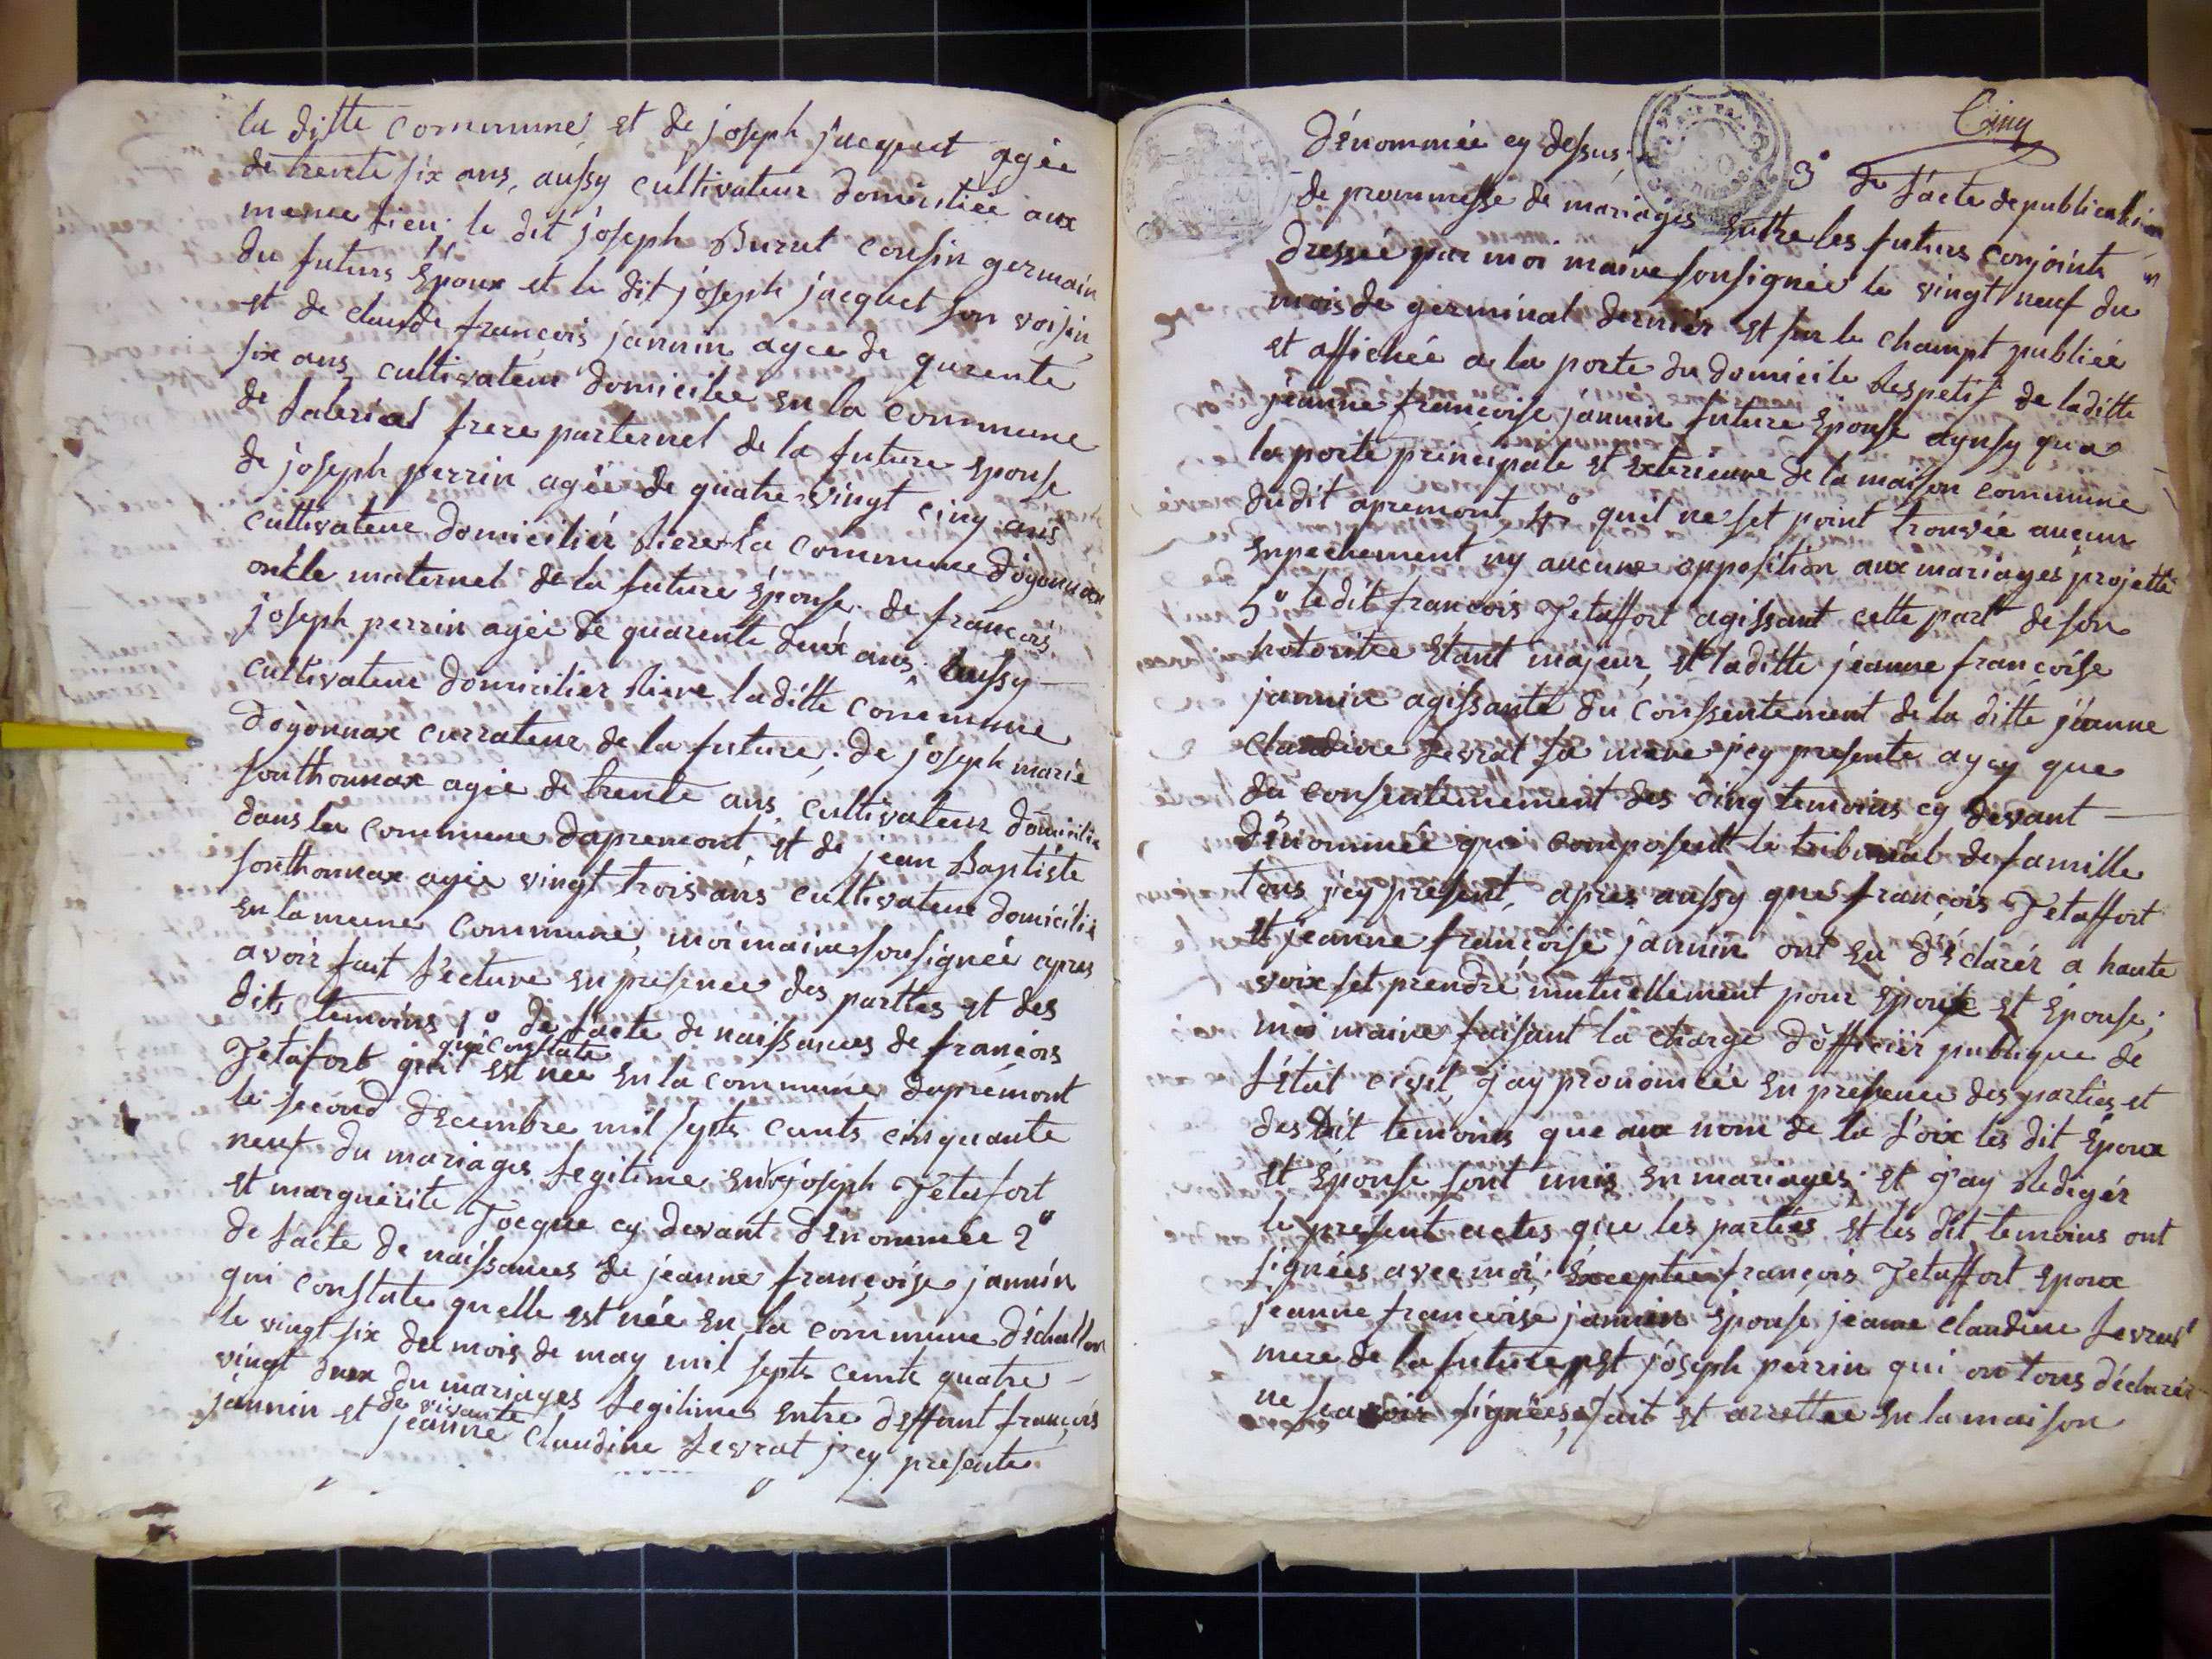 la ditte commune et de joseph jacquet agée
de trente six ans, aussy cultivateur domiciliée aux
meme lieu. le dit joseph Burut cousin germain
du futurs Epoux et le dit joseph jacquet son voisin,
et de claude françois jannin agee de qurente
six ans, cultivateur domiciliee en la commune
de frere parternel de la future epouse
de joseph perrin agée de quatre vingt cinq ans
cultivateur domiciliér riere la commune doyonnax
onkle maternel de la future Epouse. de françois
joseph perrin agée de quarente deux ans, aussy
cultivateur domicilier riere laditte commune
doyonnax currateur de la future; de joseph marie
sonthonnax agée de trente ans, cultivateur domicilie
dans la commune dapremont, et de jean Baptiste
sonthonnax agée vingt trois ans cultivateur domicilié
en la meme commune, moi maire sousignée apres
avoir fait lecture en presence des parttes et des
dits temoins 1° de l'acte de naissances de françois
Jetafort qui constate
qu'il est née en la commune daprémont
le second décembre mil septs cents cinquante
neuf du mariages legitime entre joseph Jetafort
et marguérite Jocque cy devant dénommée 2°
de l'acte de naissances de jeanne françoise jannin
qui constate quelle est née en la commune déchallon
le vingt six du mois de may mil septs cente quatre
vingt deux du mariages legitime entre deffunt françois
jannin et de vivante
jeanne claudine Levrat j'cy presente
Cinq
dénommée cy dessus; 3° de l'acte de publication
de prommesse de mariages entre les futurs conjoints
dressée par moi maire sousignée le vingt neuf du
mois de germinal dernier et sur le champt publiée
et affichée a la porte du domicile respetif de laditte
jeanne françoise jannin future Epouse aynsy qua
la porte principale et exterieure de la maison commune
dudit apremont, 4° quil ne set point trouvée aucun
enpechement ny aucune opposition aux mariages projetté
5° ledit françois Jetaffort agissant cette part de son
hotoritée étant majeur, et laditte jeanne françoise
jannin agissante du consentement de la ditte jéanne
claudine Levrat sa mere j'cy presente aycy que
du consentemement des cinq temoins cy devant
dénommée qui composent le tribunal de famille
tous j'cy present, apres aussy que françois Jetaffort
et jeanne françoise jannin ont eu déclarér a haute
voix set prendre mutuellement pour epoux et épouse;
moi maire faisant la charge dofficiér publique de
l'état civil, j'ay prononcée en presence des parties et
des dit temoins que aux nom de la l'oix les dit Epoux
et Epouse sont unis en mariages, et j'ay redigér
le present actes que les parties et les dit temoins ont
signées avec moi; Exceptée françois Jetaffort epoux
jeanne françoise jannin Epouse jeanne claudine Levrat
mere de la future et joseph perrin qui on tous déclarér
ne scavoir signées, fait et arrettee en la maison